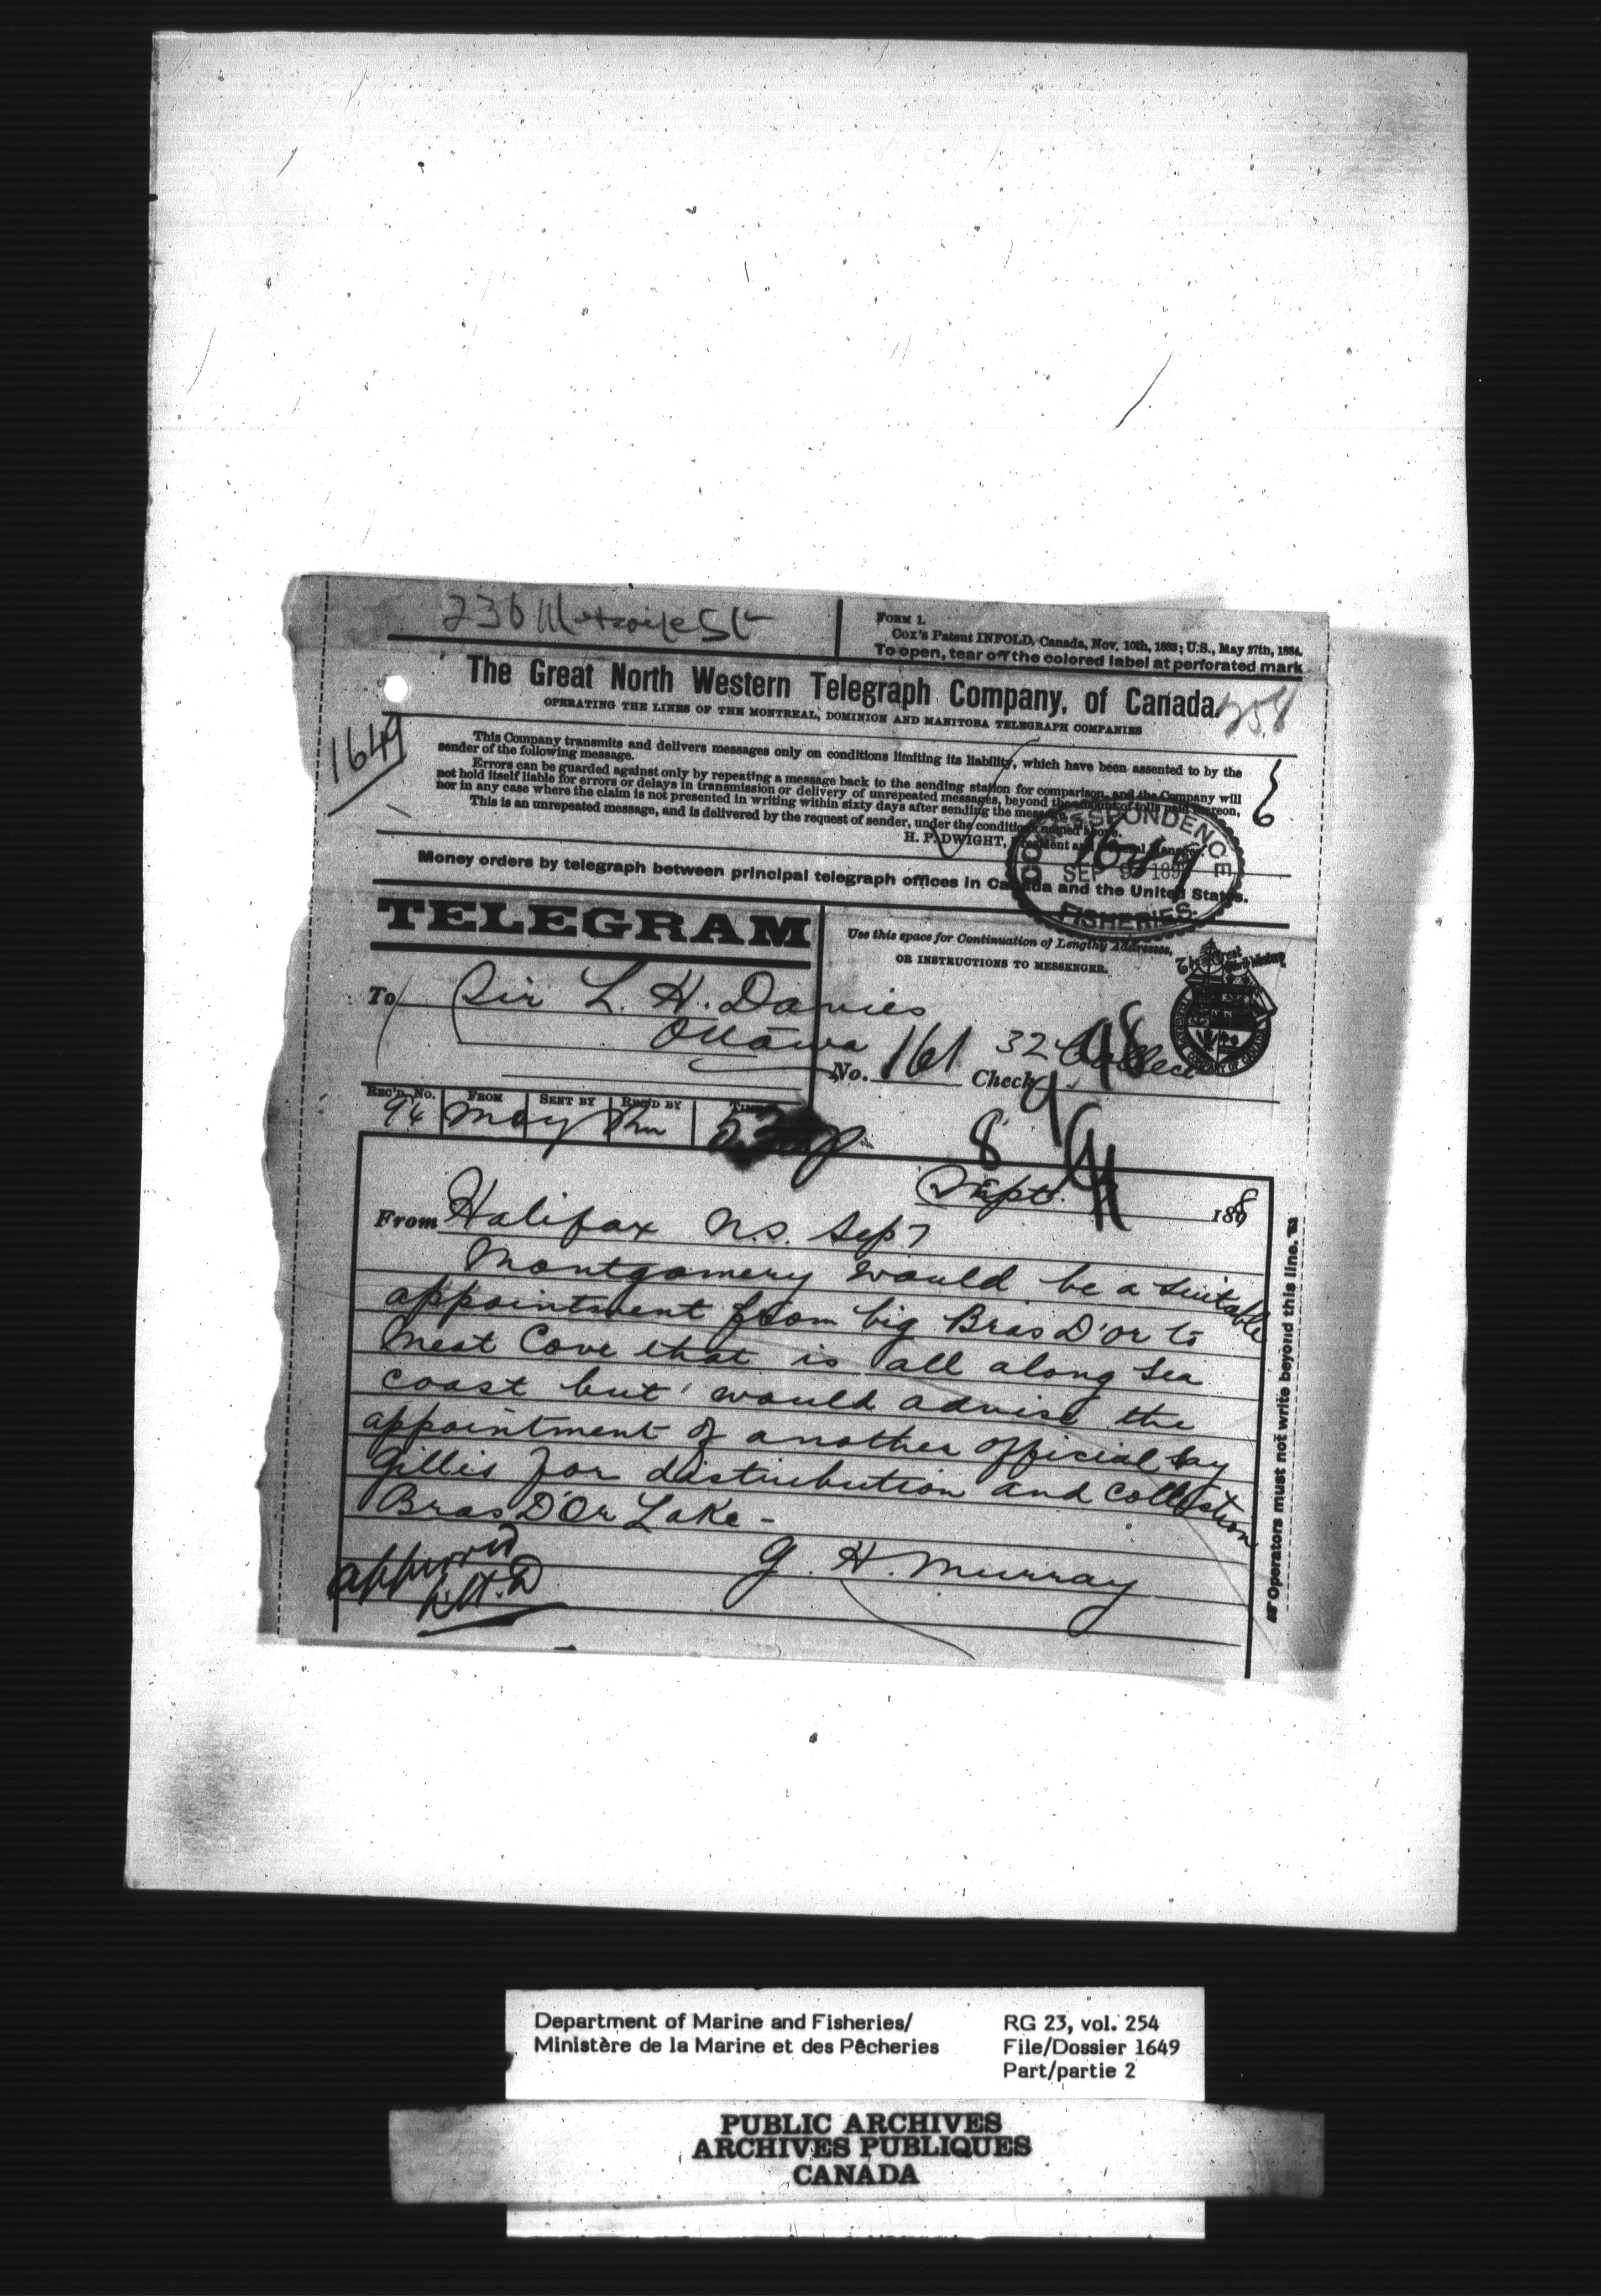 230 Metcalfe St
FORM 1.
Cox's Patent INFOLD, Canada, Nov. 10th, 1883; U.S., May 27th, 1884.
To open, tear off the colored label at perforated mark
The Great North Western Telegraph Company, of Canada.
OPERATING THE LINES OF THE MONTREAL, DOMINION AND MANITOBA TELEGRAPH COMPANIES
1649
This Company transmits and delivers messages only on conditions limiting its liability, which have been assented to by the
sender of the following message.
Errors can be guarded against only by repeating a message back to the sending station for comparison, and the Company will
not hold itself liable for errors or delays in transmission or delivery of unrepeated messages, beyond the amount of tolls paid thereon,
nor in any case where the claim is not presented in writing within sixty days after sending the message.
This is an unrepeated message, and is delivered by the request of sender, under the conditions named above.
H. P. DWIGHT, President and General Manager.
CORRESPONDENCE
SEP 9 189
FISHERIES.
Money orders by telegraph between principal telegraph offices in Canada and the United States.
TELEGRAM
Use this space for Continuation of Lengthy Addresses,
OR INSTRUCTIONS TO MESSENGER.
The Great North Western
To Sir L. H. Davies
Ottawa
No. 161 Check 32 Collect 48
REC'D, NO. FROM SENT BY REC'D BY TIME
94 May
530p
8
Sept. 1898
From Halifax N.S. Sep 7
Montgomery would be a suitable
appointment from big Bras D'or to
Meat Cove that is all along sea
coast but would advise the
appointment of another official say
Gillis for distribution and collection
Bras D'Or Lake -
G. H. Murray
approved
L.H.D
Operators must not write beyond this line.
Department of Marine and Fisheries/
Ministère de la Marine et des Pêcheries
RG 23, vol. 254
File/Dossier 1649
Part/partie 2
PUBLIC ARCHIVES
ARCHIVES PUBLIQUES
CANADA